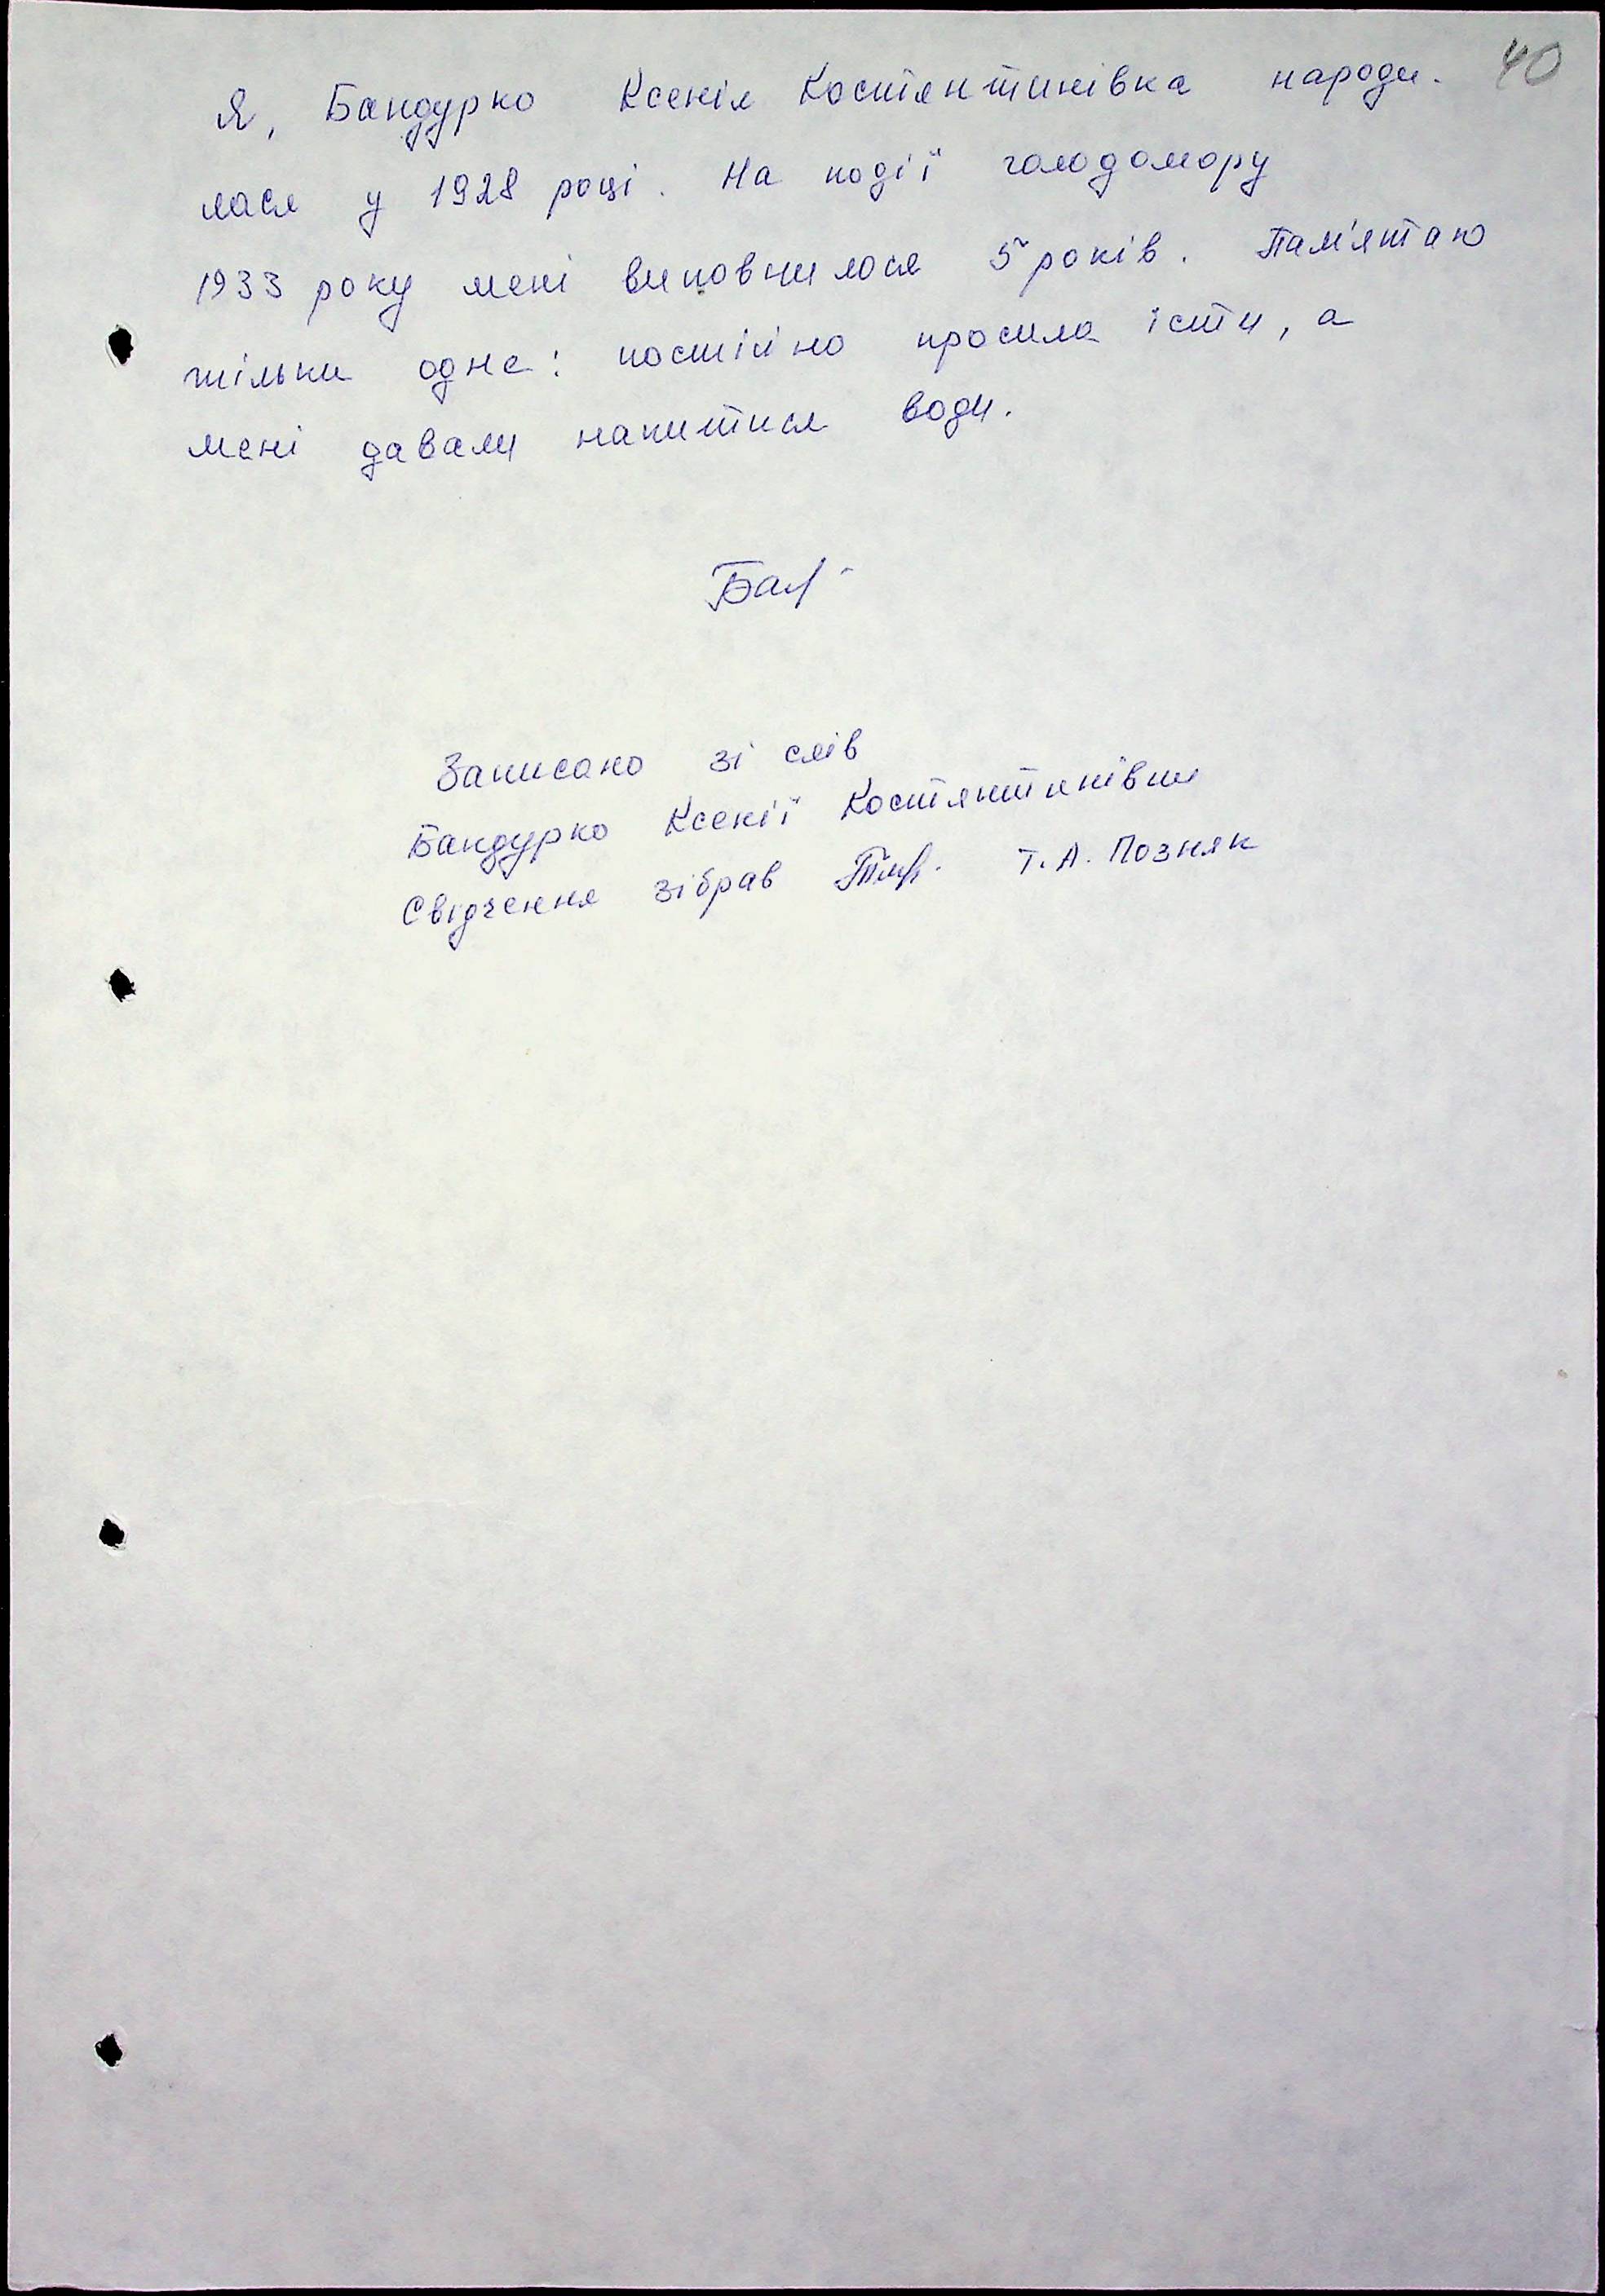 40
Я, Бандурко Ксенія Костянтинівка народи-
лася у 1928 році. На події голодомору
1933 року мені виповнилося 5 років. Пам'ятаю
тільки одне: постійно просила їсти, а
мені давали напитися води.
Записано зі слів
Бандурко Ксенії Костянтинівни
Свідчення зібрав Т.А. Позняк